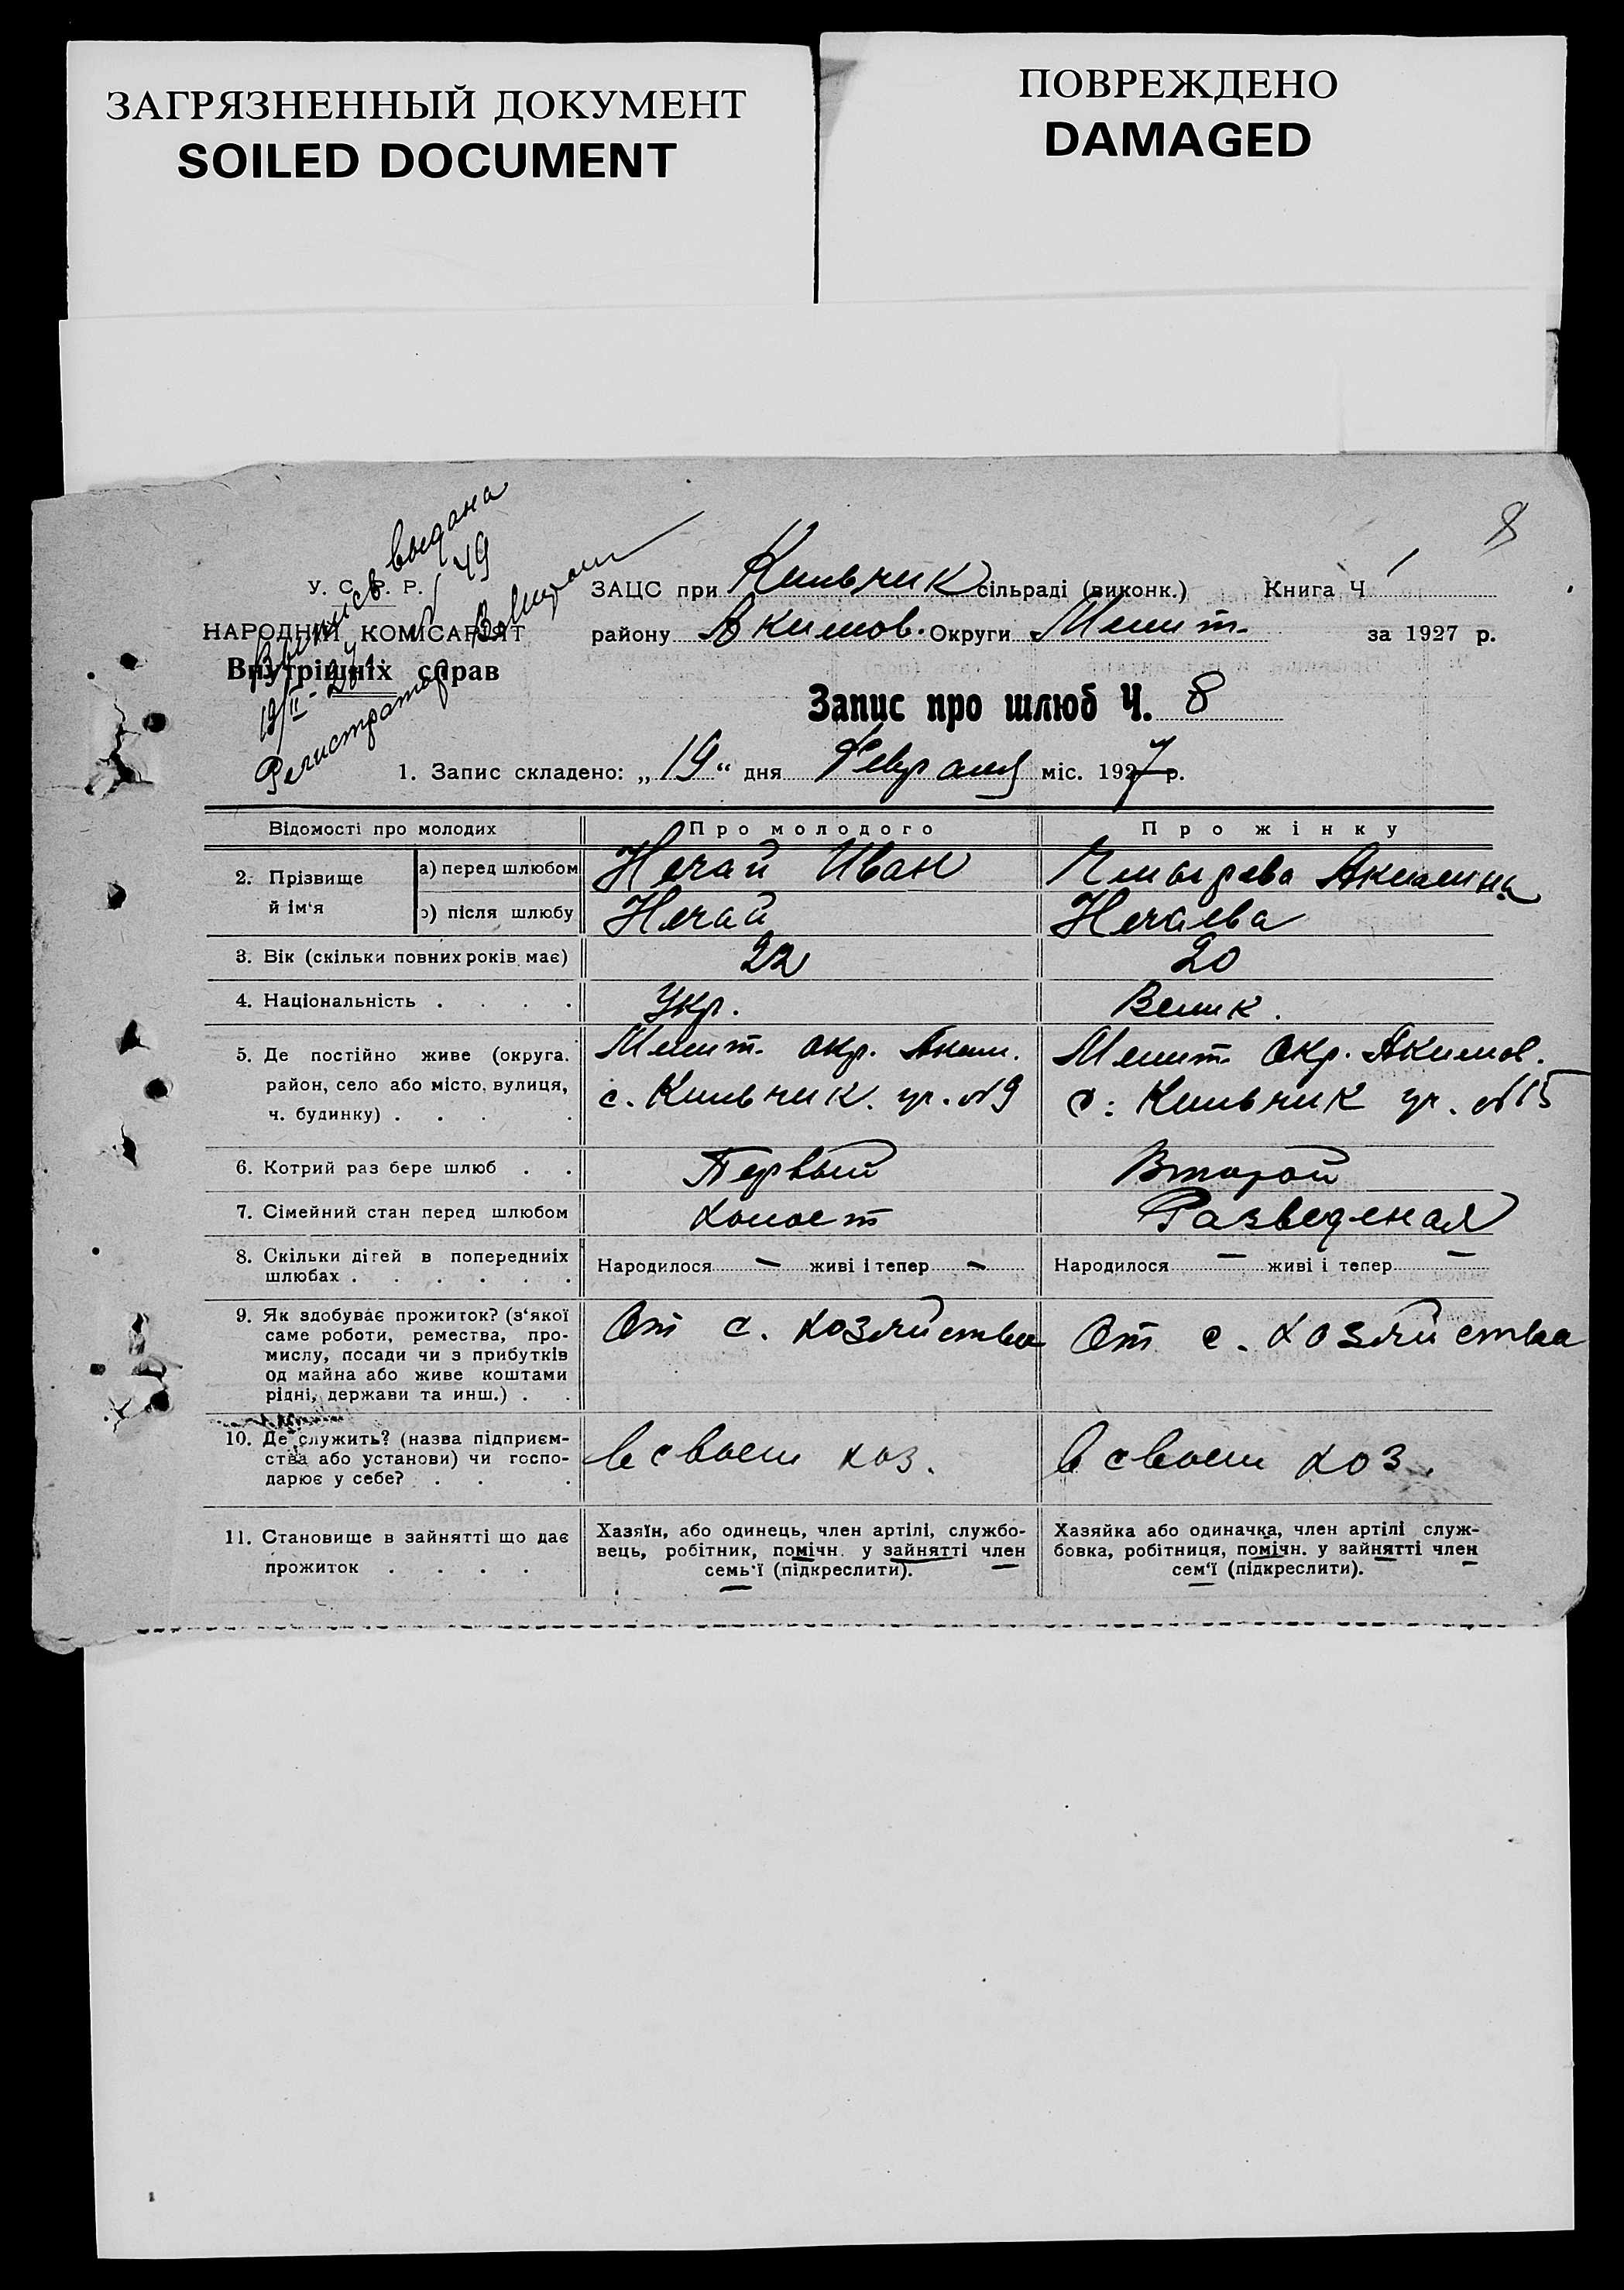 ЗАГРЯЗНЕННЫЙ ДОКУМЕНТ
SOILED DOCUMENT
ПОВРЕЖДЕНО
DAMAGED
8
выдана
№ 49
19/II-27
Регистратор
У. С. Р. Р.
НАРОДНИЙ КОМІСАРІЯТ
Внутрішніх справ
ЗАЦС при Кильчик сільраді (виконк.) Книга Ч 1
району Акимов. Округи Мелит. за 1927 р.
Запис про шлюб Ч. 8
1. Запис складено: „19“ дня Февраля міс. 1927 р.
Відомості про молодих Про молодого Про жінку
2. Прізвище й ім‘я
а) перед шлюбом Нечай Иван Акилина
б) після шлюбу Нечай Нечаева
3. Вік (скільки повних років має) 22 20
4. Національність . . . . Укр. Велик.
5. Де постійно живе (округа, район, село або місто, вулиця, ч. будинку) . . . .
Мелит. окр. Аким. Мелит. Окр. Акимов.
с. Кильчик. ул. №9 с. Кильчик ул. №15
6. Котрий раз бере шлюб . . Первый Второй
7. Сімейний стан перед шлюбом холост Разведеная
8. Скільки дітей в попередниіх Народилося — живі і тепер — Народилося — живі і тепер —
шлюбах . . . . . .
9. Як здобуває прожиток? (з‘якої
саме роботи, ремества, про-
мислу, посади чи з прибутків
од майна або живе коштами
рідні, держави та инш.) . .
От с. хозяйства От с. хозяйства
10. Де служить? (назва підприєм-
ства або установи) чи госпо-
дарює у себе? . . .
в своем хоз. в своем хоз.
11. Становище в зайнятті що дає
прожиток . . . .
Хазяїн, або одинець, член артілі, службо-
вець, робітник, помічн. у зайнятті член
семь‘ї (підкреслити).
Хазяйка або одиначка, член артілі служ-
бовка, робітниця, помічн. у зайнятті член
сем‘ї (підкреслити).